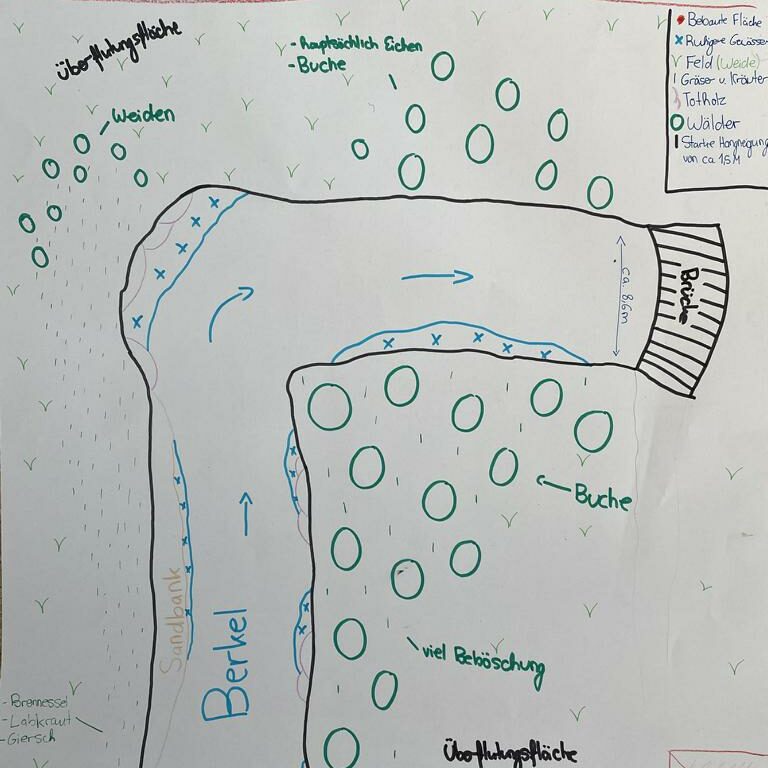 Überflutungsfläche
- hauptsächlich Eichen
- Buche
Weiden
Bebaute Fläche
Ruhigere Gewässer
Feld (Weide)
Gräser u. Kräuter
Totholz
Wälder
Starke Hangneigung
von ca 1,5M
Brücke
ca. 8,6m
Buche
Sandbank
Berkel
viel Beböschung
- Brennessel
- Labkraut
- Giersch
Überflutungsfläche